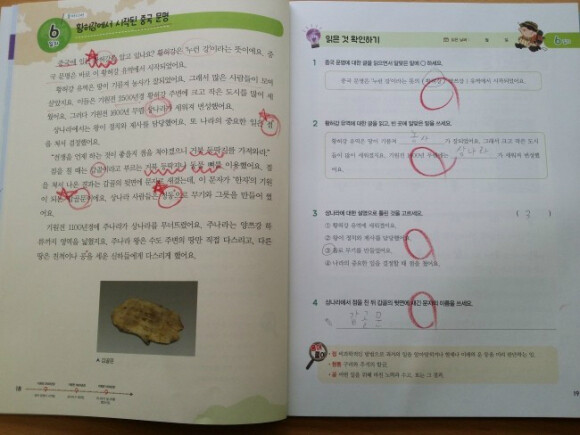 6
황허강에서 시작된 중국 문명
중국에 있는 황허강을 알고 있나요? 황허강은 '누런 강'이라는 뜻이에요. 중
국 문명은 바로 이 황허강 유역에서 시작되었어요.
황허강 유역은 땅이 기름져 농사가 잘되었어요. 그래서 많은 사람들이 모여
살았지요. 이들은 기원전 2500년경 황허강 주변에 크고 작은 도시를 많이 세
웠어요. 그러다 기원전 1600년 무렵 상나라가 세워져 번성했어요.
상나라에서는 왕이 정치와 제사를 담당했어요. 또 나라의 중요한 일은 점
을 쳐서 결정했어요.
"전쟁을 언제 하는 것이 좋을지 점을 쳐야겠으니 거북 등딱지를 가져와라."
점을 칠 때는 갑골이라고 부르는 거북 등딱지나 동물 뼈를 이용했어요. 점
을 쳐서 나온 결과는 갑골의 뒷면에 문자로 새겼는데, 이 문자가 '한자'의 기원
이 되는 갑골문이에요. 상나라 사람들은 청동으로 무기와 그릇을 만들어 썼
어요.
기원전 1100년경 주나라가 상나라를 무너뜨렸어요. 주나라는 양쯔강 하
류까지 영역을 넓혔지요. 주나라 왕은 수도 주변의 땅만 직접 다스리고, 다른
땅은 친척이나 공을 세운 신하들에게 다스리게 했어요.
▲ 갑골문
18
읽은 것 확인하기
6
1 중국 문명에 대한 글을 읽으면서 알맞은 말에 ○ 하세요.
중국 문명은 '누런 강'이라는 뜻의 ( 황허강 ) 유역에서 시작되었어요.
2 황허강 유역에 대한 글을 읽고, 빈 곳에 알맞은 말을 쓰세요.
황허강 유역은 땅이 기름져 농사 가 잘되었어요. 그래서 크고 작은 도시
들이 많이 세워졌지요. 기원전 1600년 무렵에는 상나라 가 세워져 번성했
어요.
3 상나라에 대한 설명으로 틀린 것을 고르세요. ( 3 )
① 황허강 유역에 세워졌어요.
② 왕이 정치와 제사를 담당했어요.
③ 철로 무기를 만들었어요.
④ 나라의 중요한 일을 결정할 때 점을 쳤어요.
4 상나라에서 점을 친 뒤 갑골의 뒷면에 새긴 문자의 이름을 쓰세요.
갑골문
19